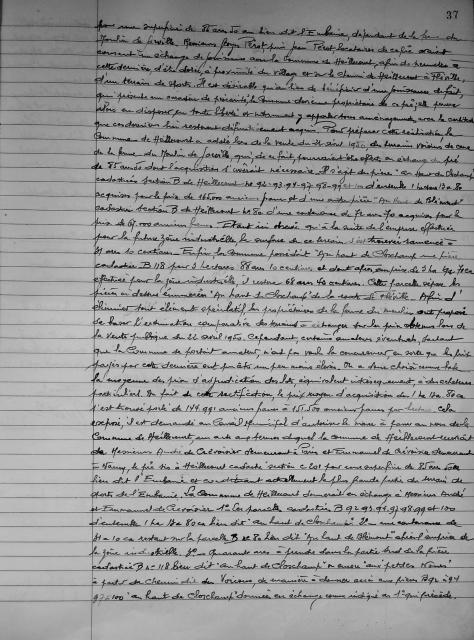 37
pour une superficie de 85 ares 50 au lieu dit l'Embanie, dépendant de la ferme du
Moulin de Messieurs Roger père Perot locataires de
consenti un échange de avec la Commune de Heillecourt, afin de permettre à
cette dernière, d'établir, à proximité du village et sur le chemin de Heillecourt à Fléville,
d'un terrain de sports. Il est désirable qu'au lieu de bénéficier d'une jouissance de fait,
qui présente un caractère de précarité, la Commune devienne propriétaire de ce pré, elle pourra
alors en disposer en toute liberté et notamment y apporter tous aménagements, avec la certitude
que ces derniers lui resteront définitivement acquis. Pour préparer cette réalisation, la
Commune de Heillecourt a acheté lors de la vente du 22 avril 1950, des terrains voisins de ceux
de la ferme du Moulin de qui, de ce fait, pourraient être offerts en échange du pré
de 85 ares 50 dont l'acquisition s'avérait nécessaire. Il s'agit du pièce "en Haut de Closchamp"
cadastrées section B de Heillecourt Nos 92-93-94-97-98-99 et 100 d'entendre 1 ha 12 a 80
acquises pour le prix de anciens francs et d'une autre pièce "Au Haut de Blémont"
cadastrée section B de Heillecourt N° 80 d'une contenance de 71 ares 70 acquise pour le
prix de 67.000 anciens francs. Etant ici observé qu'à la suite de l'emprise effectuée
pour la future zône industrielle la surface de ce terrain s'est trouvée ramenée à
21 ares 10 centiares. Enfin la Commune possédait "Au haut de Closchamp" une pièce
cadastrée B 118 pour 3 hectares 88 ares 10 centiares et dont après emprise de 3 ha
effectuée pour la zône industrielle, il restera 68 ares 40 centiares. Cette parcelle sépare les
pièces ci-dessus énumérées "Au haut de Closchamp" de la route de Fléville. Afin d'
éliminer tout élément spéculatif les propriétaires de la ferme du moulin ont proposé
de baser l'estimation comparative des terrains à échanger sur les prix obtenus lors de
la vente publique du 22 avril 1950. Cependant, certains amateurs éventuels, sachant
que la Commune se portait amateur, n'ont pas voulu la concurrencer, en sorte que les prix
payés par cette dernière ont peut-être un peu moins élevés. On a donc choisi comme base
la moyenne des prix d'adjudication des lots, équivalents intrinsèquement, à des acheteurs
particuliers. Du fait de cette rectification, le prix moyen d'acquisition des 1 ha 12 a 80 ca
s'est trouvé porté de 144.991 anciens francs à 151.500 anciens francs par hectare. Cela
exposé, il est demandé au Conseil Municipal d'autoriser le maire à passer au nom de la
Commune de Heillecourt, un acte aux termes duquel la commune de Heillecourt recevrait
de Messieurs André de Crevoisier demeurant à Paris et Emmanuel de Crevoisier demeurant
à Nancy, le pré sis à Heillecourt cadastré section C 201 pour une superficie de 85 ares 50 au
lieu dit l'Embanie et constituant actuellement la plus grande partie du terrain de
sports de l'Embanie. La Commune de Heillecourt donnerait en échange à Messieurs André
et Emmanuel de Crevoisier 1° Les parcelles cadastrées B 92.93.94.97.98.99 et 100
d'entendre 1 ha 12 a 80 ca lieu dit "au haut de Closchamp" 2° une contenance de
21 a 10 ca restant sur la parcelle B N° 80 lieu dit "Au haut de Blémont" après l'emprise de
la zône industrielle. 3° Quarante ares à prendre dans la partie sud de la pièce
cadastrée B N° 118 lieu dit "au haut de Closchamp" ou encore "aux petites Noires"
à partir du Chemin dit des Voiseux, de manière à donner accès aux pièces B 92 à 94
97 à 100 "au haut de Closchamp" données en échange comme indiqué au 1° qui précède.